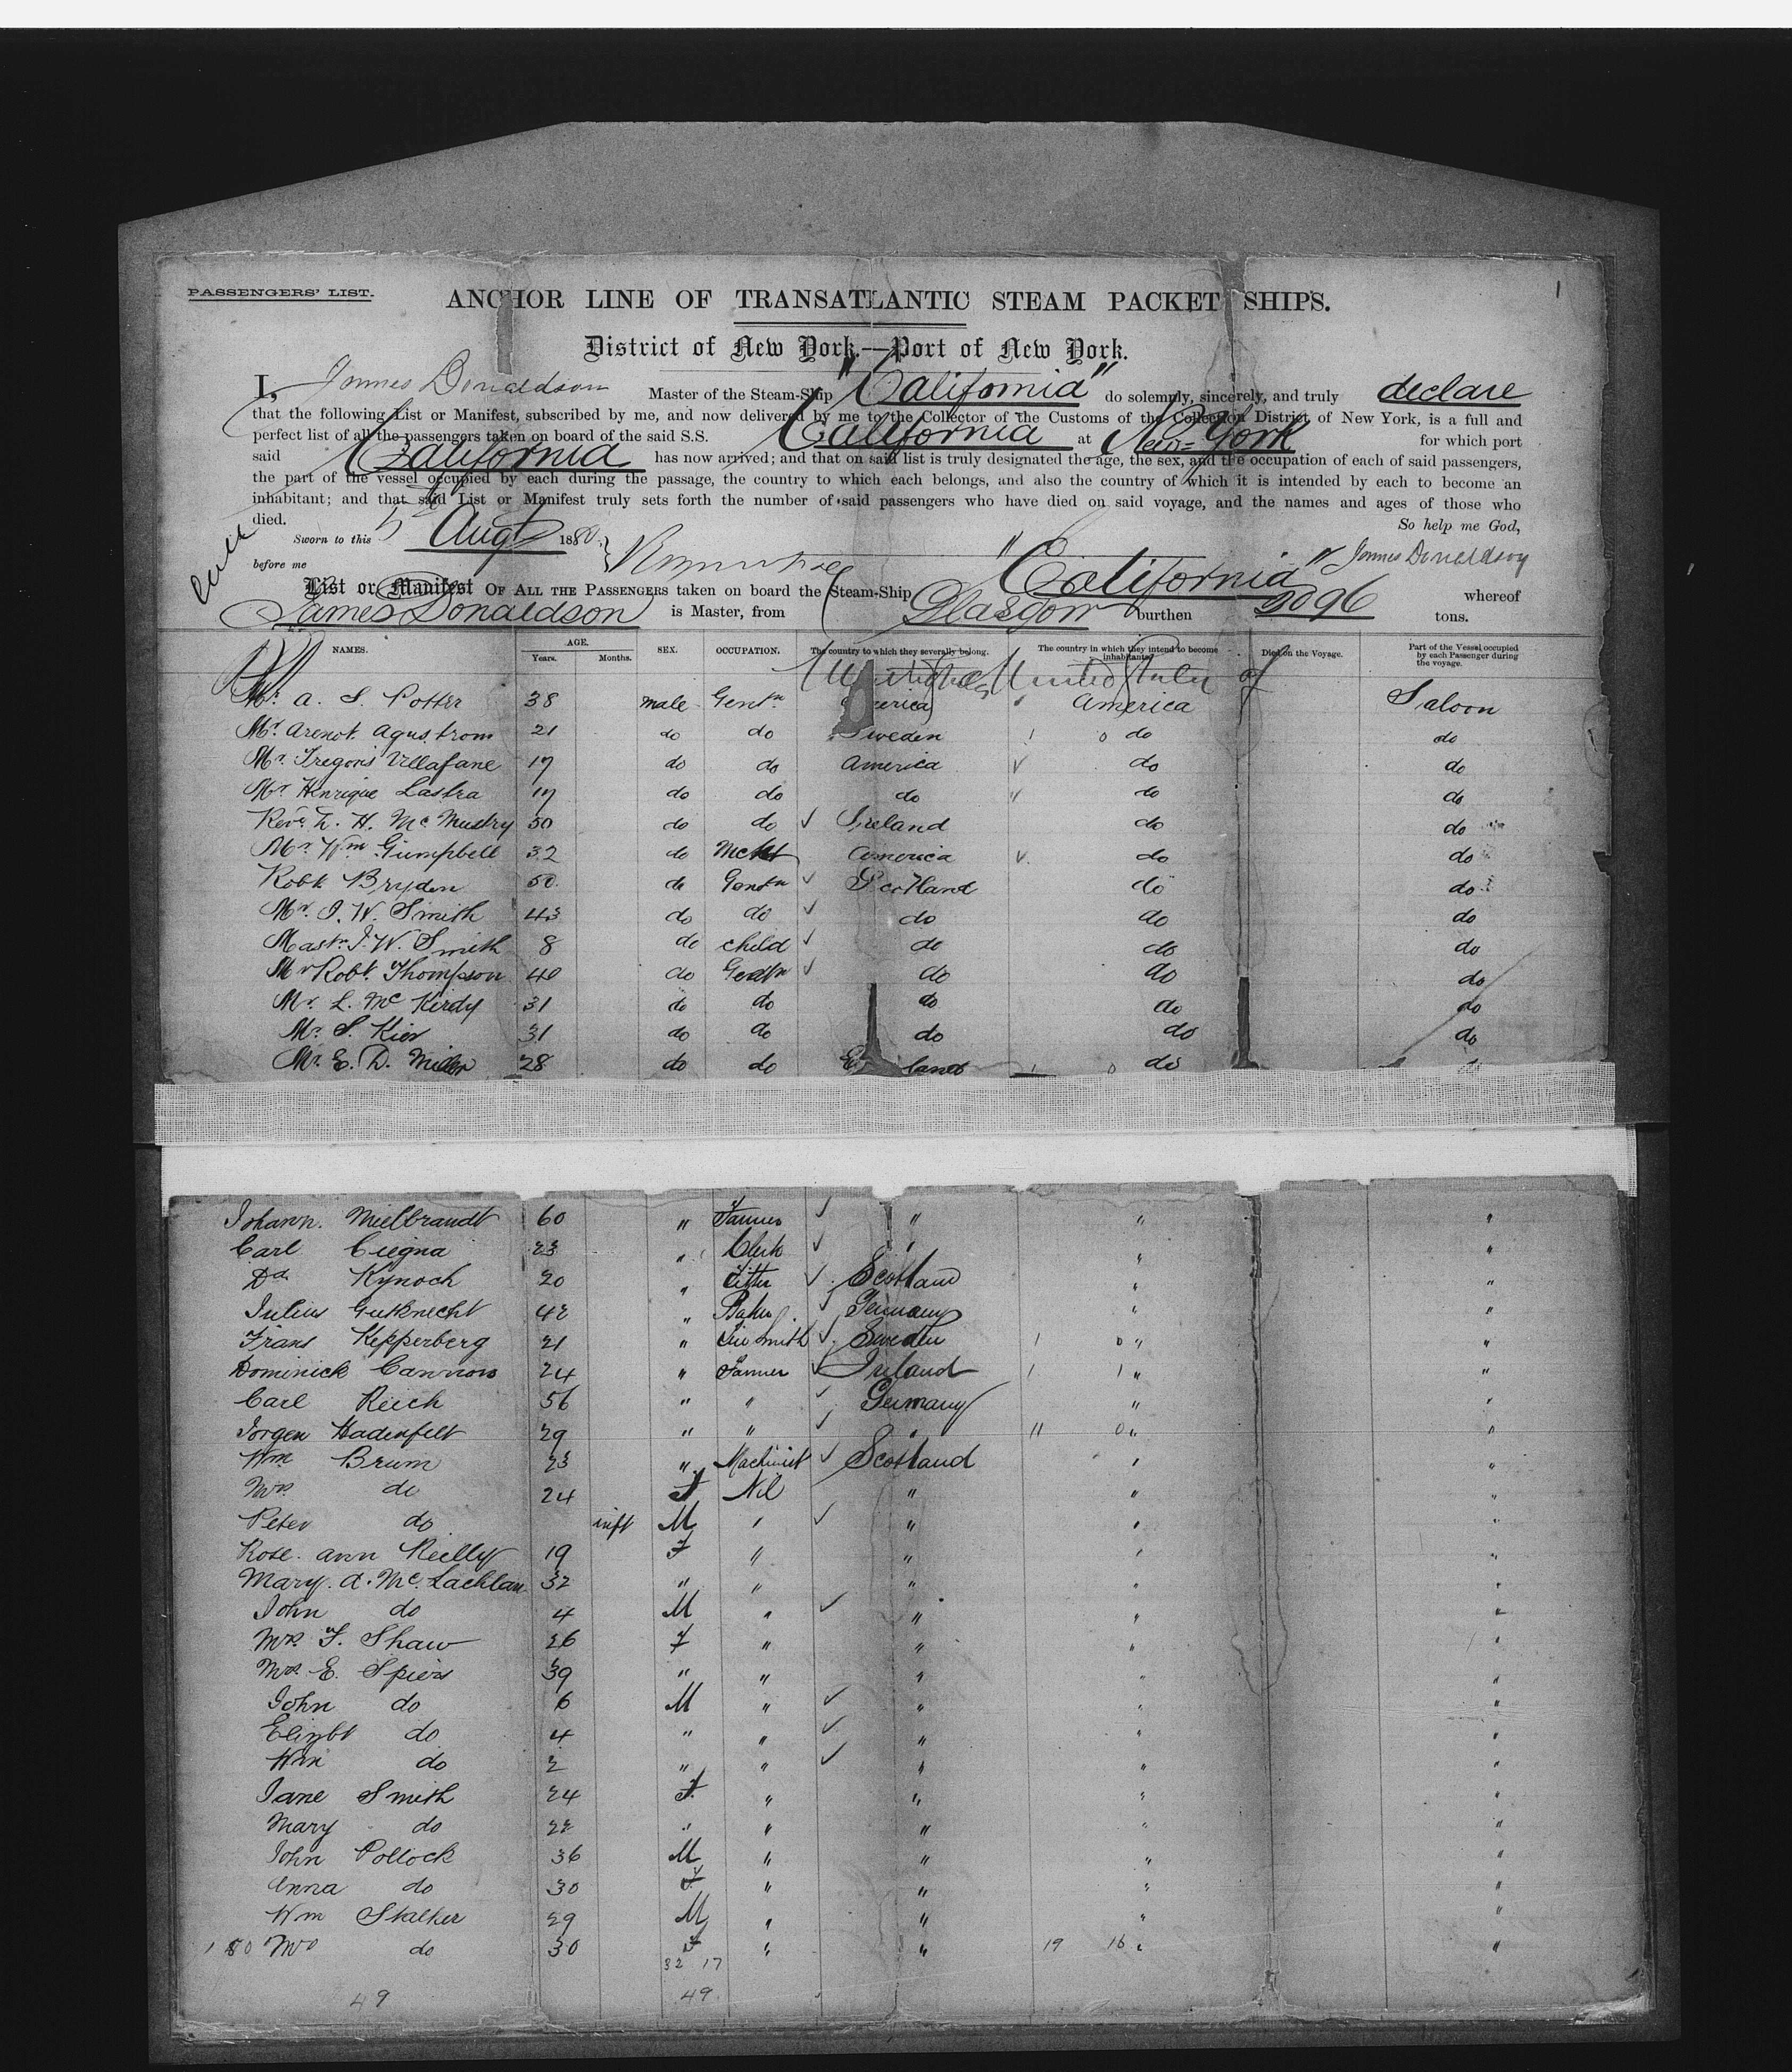 PASSENGERS' LIST.
1
ANCHOR LINE OF TRANSATLANTIC STEAM PACKET SHIPS.
District of New York.—Port of New York.
I, James Donaldson Master of the Steam-Ship "California" do solemnly, sincerely, and truly declare
that the following List or Manifest, subscribed by me, and now delivered by me to the Collector of the Customs of the Collection District of New York, is a full and
perfect list of all the passengers taken on board of the said S.S. California at New-York for which port
said California has now arrived; and that on said list is truly designated the age, the sex, and the occupation of each of said passengers,
the part of the vessel occupied by each during the passage, the country to which each belongs, and also the country of which it is intended by each to become an
inhabitant; and that said List or Manifest truly sets forth the number of said passengers who have died on said voyage, and the names and ages of those who
died. So help me God,
Sworn to this 5 Augt 1880
before me James Donaldson
List or Manifest OF ALL THE PASSENGERS taken on board the Steam-Ship "California" whereof
James Donaldson is Master, from Glasgow burthen 2096 tons.
NAMES. AGE. Years. Months. SEX. OCCUPATION. The country to which they severally belong. The country in which they intend to become inhabitants. Died on the Voyage. Part of the Vessel occupied by each Passenger during the voyage.
United States United States of
Mr. A. S. Potter 38 male Gentn America Saloon
Mr. Arenot Agustrom 21 do do Sweden 1 0 do do
Mr. Gregoris Villafane 17 do do America do do
Mr. Henrique Lastra 17 do do do do do
Revd. L. H. Mc Mustry 30 do do Ireland do do
Mr. Wm Gumpbell 32 do Mcht America do do
Robt Bryden 50 do Gentn Scotland do do
Mr. J. W. Smith 43 do do do do do
Mastr. J. W. Smith 8 do child do do do
Mr Robt. Thompson 40 do Gentn do do do
Mr. L. Mc Kirdy 31 do do do do do
Mr. S. Kier 31 do do do do do
Mr. E. D. Miller 28 do do land 1 0 do do
Johann. Mielbrandt 60 " Farmer " " "
Carl Ciegna 23 " Clerk " " "
Dd. Kynoch 20 " Fitter Scotland " "
Julius Gutknecht 42 " Baker Germany " "
Frans Kepperberg 21 " Tin Smith Sweden 1 0 " "
Dominick Cannon 24 " Farmer Ireland 1 1 " "
Carl Reich 56 " " Germany " "
Jorgen Hadenfelt 29 " " " 11 0 " "
Wm Brum 23 " Machinist Scotland " "
Mrs. do 24 F Nil " " "
Peter do inft M " " " "
Rose. ann Reilly 19 F " " " "
Mary. A. Mc. Lachlan 32 " " " " "
John do 4 M " " " "
Mrs. F. Shaw 26 F " " " "
Mrs E. Spiers 39 " " " " "
John do 6 M " " " "
Elizbt do 4 " " " " "
Wm do 2 " " " " "
Jane Smith 24 F " " " "
Mary do 22 " " " " "
John Pollock 36 M " " " "
Anna do 30 F " " " "
Wm Stalker 29 M " " " "
Mrs do 30 F " " 19 16 " "
32 17
49 49